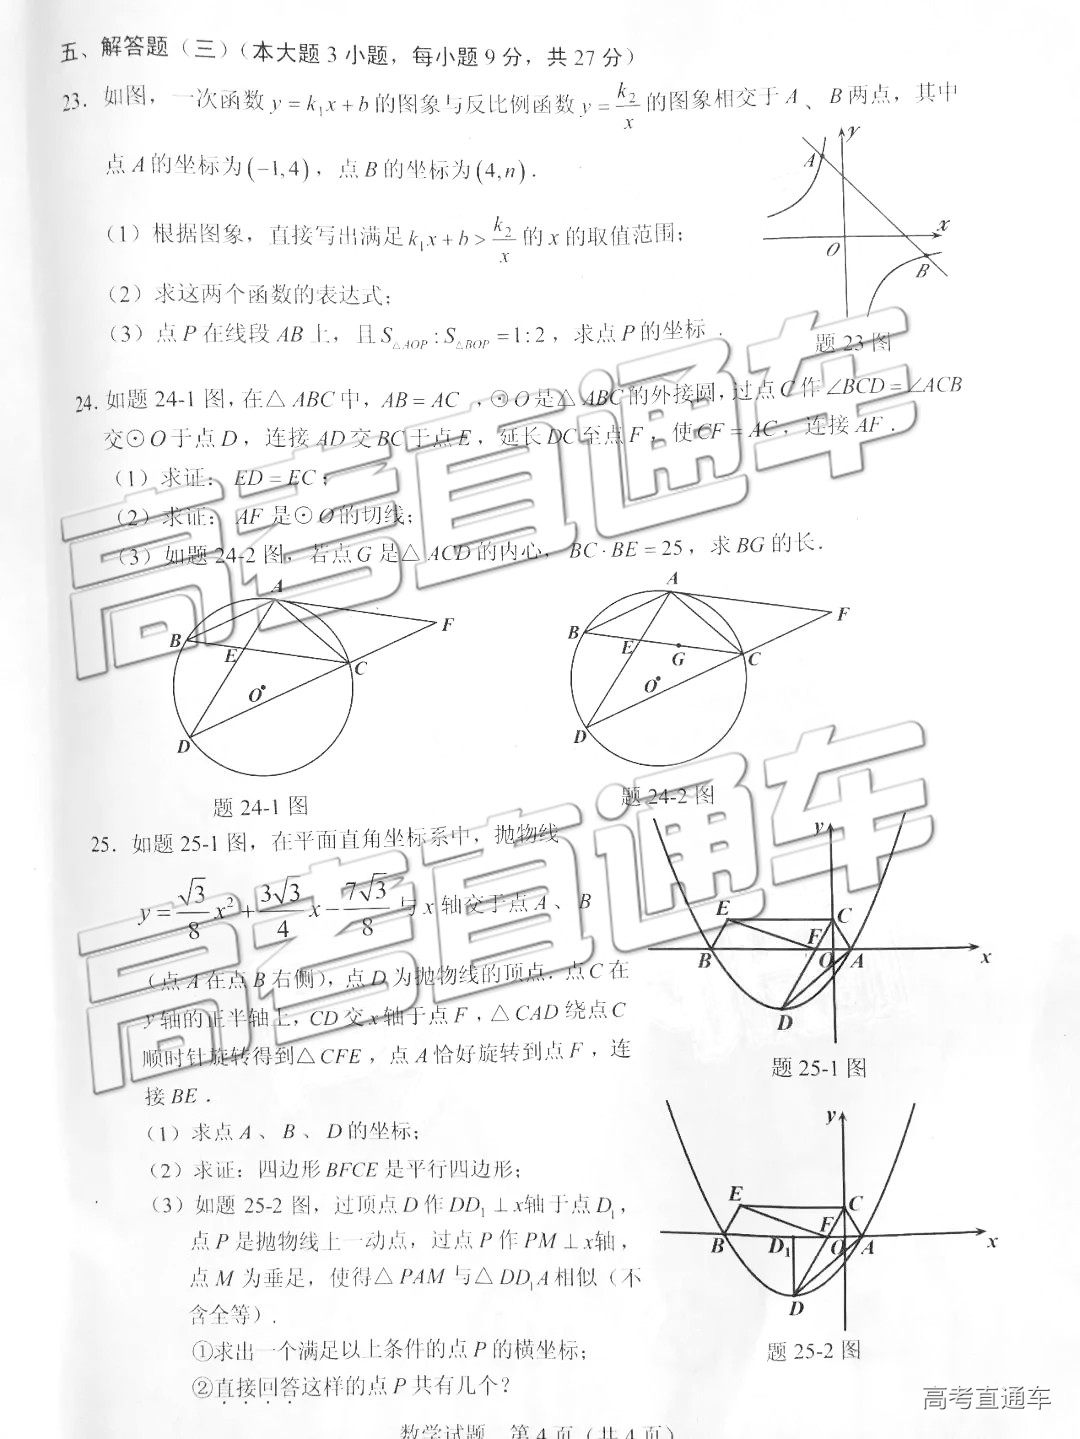 五、解答题（三）（本大题3小题，每小题9分，共27分）
23．如图，一次函数 y = k₁x + b 的图象与反比例函数 y = k₂/x 的图象相交于 A 、 B 两点，其中
点 A 的坐标为 (−1,4) ，点 B 的坐标为 (4,n) ．
（1）根据图象，直接写出满足 k₁x + b > k₂/x 的 x 的取值范围；
（2）求这两个函数的表达式；
（3）点 P 在线段 AB 上，且 S△AOP : S△BOP = 1:2 ，求点 P 的坐标．
A
y
O
x
B
题 23 图
24．如题 24-1 图，在△ ABC 中，AB = AC ，⊙O 是△ ABC 的外接圆，过点 C 作 ∠BCD = ∠ACB
交⊙O 于点 D ，连接 AD 交 BC 于点 E ，延长 DC 至点 F ，使 CF = AC ，连接 AF ．
（1）求证：ED = EC ；
（2）求证：AF 是⊙O 的切线；
（3）如题 24-2 图，若点 G 是△ ACD 的内心，BC · BE = 25 ，求 BG 的长．
A
B
E
C
F
O
D
题 24-1 图
A
B
E
G
C
F
O
D
题 24-2 图
25．如题 25-1 图，在平面直角坐标系中，抛物线
y = √3/8 x² + 3√3/4 x − 7√3/8 与 x 轴交于点 A 、 B
（点 A 在点 B 右侧），点 D 为抛物线的顶点．点 C 在
y 轴的正半轴上，CD 交 x 轴于点 F ，△ CAD 绕点 C
顺时针旋转得到△ CFE ，点 A 恰好旋转到点 F ，连
接 BE ．
（1）求点 A 、 B 、 D 的坐标；
（2）求证：四边形 BFCE 是平行四边形；
（3）如题 25-2 图，过顶点 D 作 DD₁ ⊥ x轴于点 D₁ ，
点 P 是抛物线上一动点，过点 P 作 PM ⊥ x轴，
点 M 为垂足，使得△ PAM 与△ DD₁A 相似（不
含全等）．
①求出一个满足以上条件的点 P 的横坐标；
②直接回答这样的点 P 共有几个？
y
E
C
F
B
O
A
x
D
题 25-1 图
y
E
C
F
B
D₁
O
A
x
D
题 25-2 图
高考直通车
高考直通车
高考直通车
数学试题 第 4 页（共 4 页）